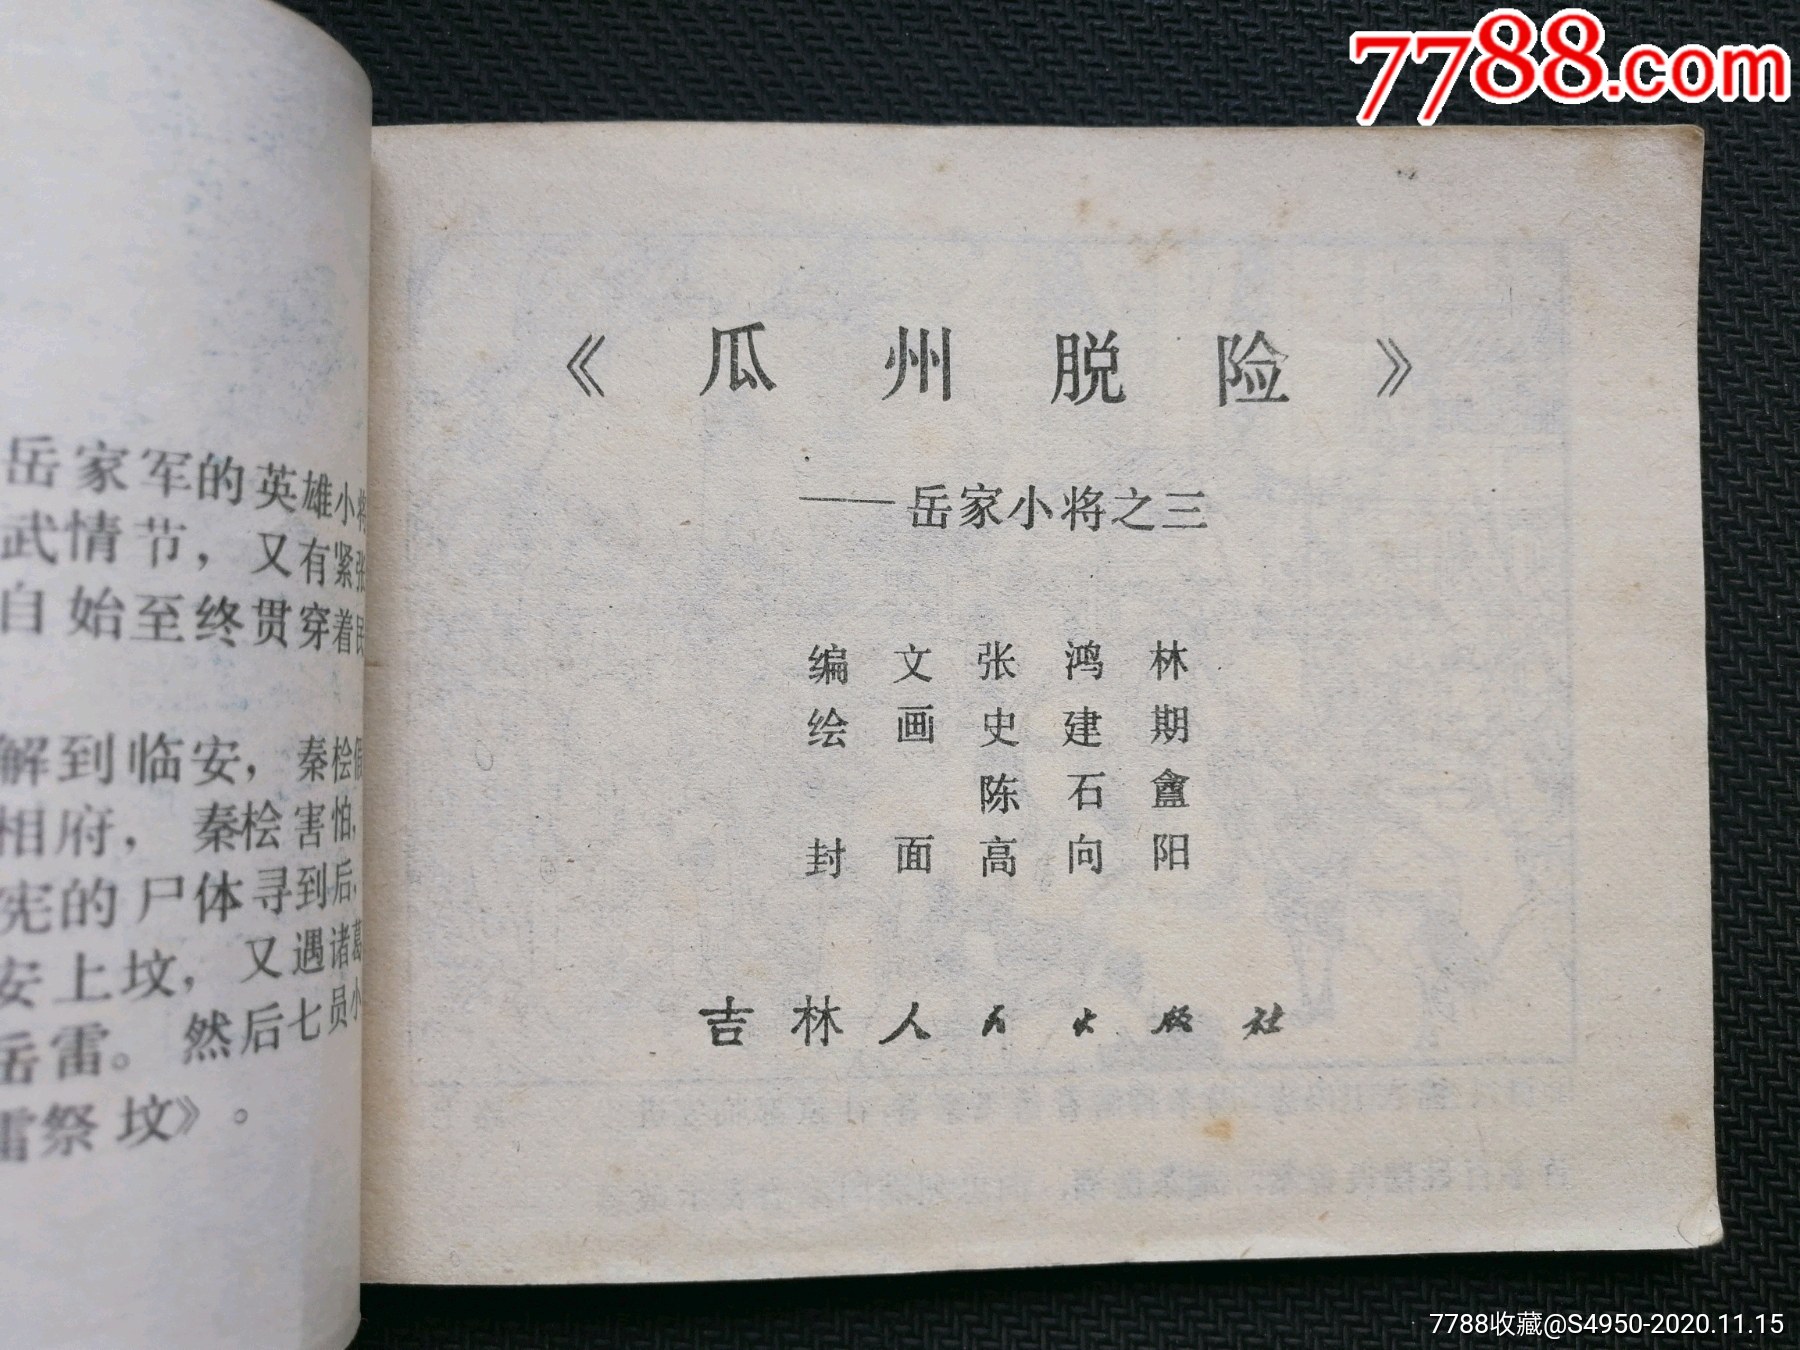 7788.com
岳家军的英雄小将
武情节，又有紧张
自始至终贯穿着民
解到临安，秦桧假
相府，秦桧害怕，
宪的尸体寻到后，
安上坟，又遇诸葛
岳雷。然后七员小
雷祭坟》。
《瓜州脱险》
——岳家小将之三
编文张鸿林
绘画史建期
陈石盦
封面高向阳
吉林人民出版社
7788收藏@S4950-2020.11.15